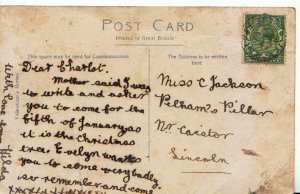 POST CARD
Printed in Great Britain
This space may be used for Communication
The address to be written here
Dear Charlot.
Mother said I was
to write and asker
you to come for the
fifth of January as
it is the Christmas
tree. Evelyn wants
you to come very badly
so remember and come
With love from Hilda
Miss C Jackson
Pelham's Pillar
Nr Caistor
Lincoln